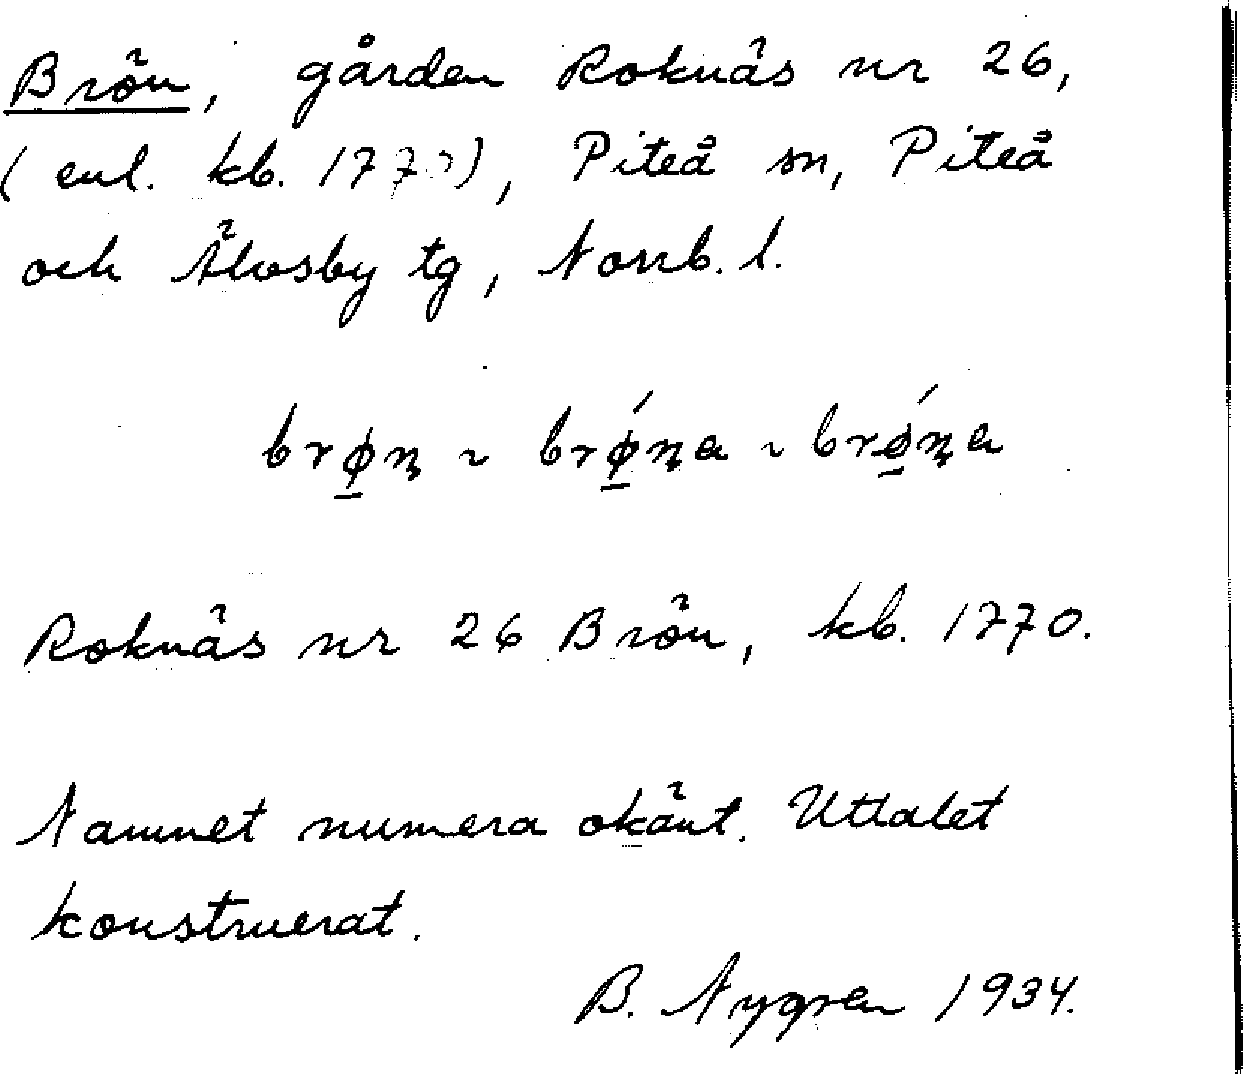 Brön, gården Roknäs nr 26,
(enl. kb. 1770), Piteå sn, Piteå
och Älvsby tg, Norrb. l.
brø̲n̥ ~ brǿ̲n̥a ~ brǿ̲n̥a
Roknäs nr 26 Brön, kb. 1770.
Namnet numera okänt. Uttalet
konstruerat.
B. Nygren 1934.